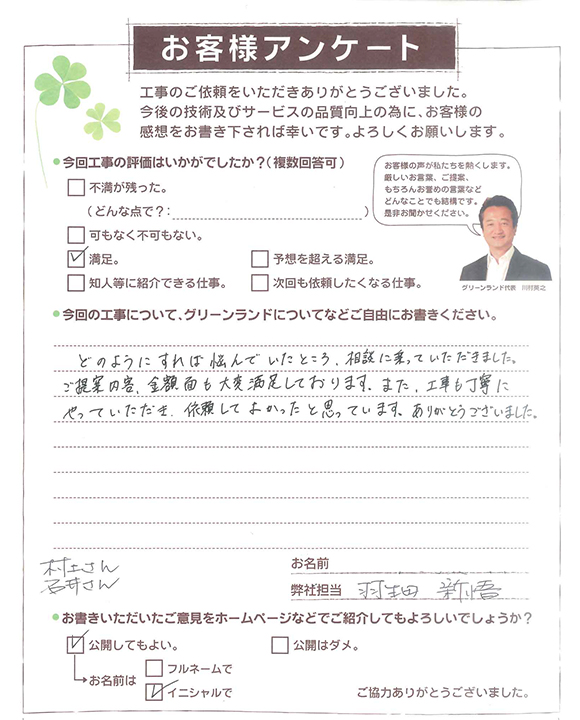 お客様アンケート
工事のご依頼をいただきありがとうございました。
今後の技術及びサービスの品質向上の為に、お客様の
感想をお書き下されば幸いです。よろしくお願いします。
●今回工事の評価はいかがでしたか？（複数回答可）
不満が残った。
（どんな点で？：　　　）
可もなく不可もない。
満足。
予想を超える満足。
知人等に紹介できる仕事。
次回も依頼したくなる仕事。
お客様の声が私たちを熱くします。
厳しいお言葉、ご提案、
もちろんお誉めの言葉など
どんなことでも結構です。
是非お聞かせください。
グリーンランド代表　川村英之
●今回の工事について、グリーンランドについてなどご自由にお書きください。
どのようにすれば悩んでいたところ、相談に乗っていただきました。
ご提案内容、金額面も大変満足しております。また、工事も丁寧に
やっていただき、依頼してよかったと思っています。ありがとうございました。
村土さん
石井さん
お名前
弊社担当　羽生田　新悟
●お書きいただいたご意見をホームページなどでご紹介してもよろしいでしょうか？
公開してもよい。
公開はダメ。
お名前は
フルネームで
イニシャルで
ご協力ありがとうございました。